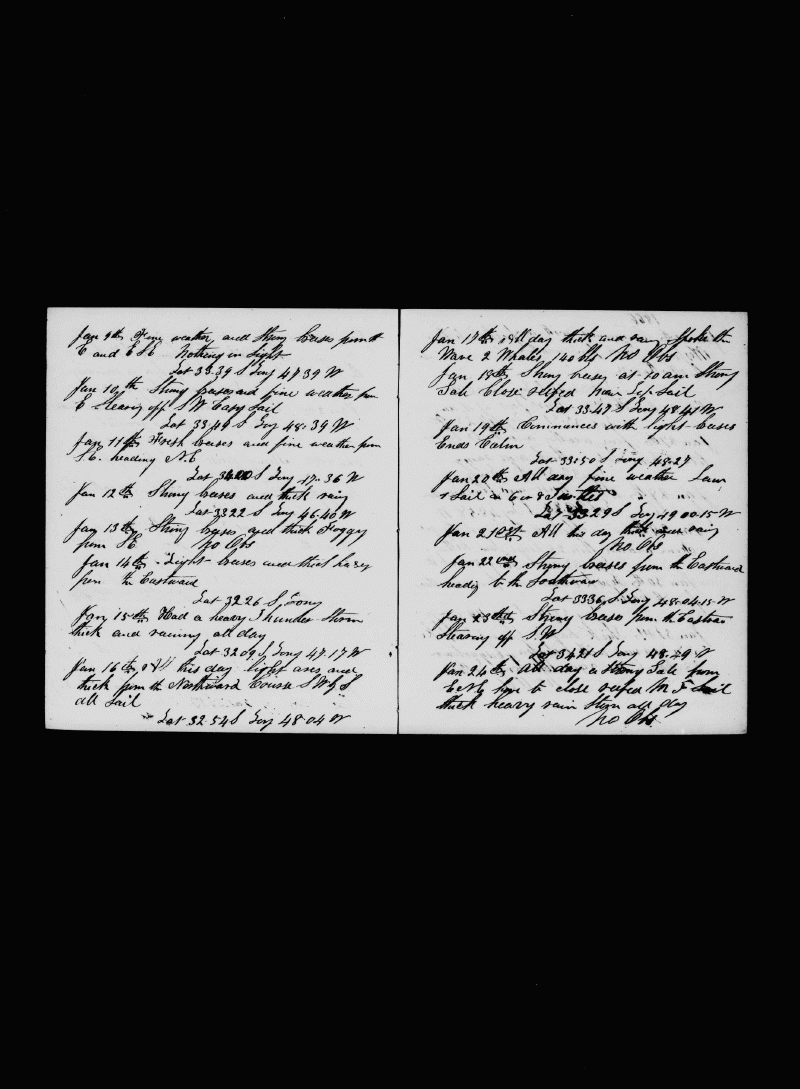 Jan 9th Fine weather and Strong breeses from
E and E S E Nothing in Sight
Lat 33.39 S Long 47 39 W
Jan 10th Strong breeses and fine weather from
E Stearing off S W Easy Sail
Lat 33 49 S Long 48.39 W
Jan 11th Fresh breeses and fine weather from
S.E. heading N.E
S Long 36 W
Jan 12th Strong breeses and thick rainy
Lat 3322 S Long 46.40 W
Jan 13th Strong breeses and thick Foggy
from S E No Obs
Jan 14th Light breeses and thick hazy
from the Eastward
Lat 3226 S Long
Jan 15th Had a heavy Thunder Storm
thick and raining all day
Lat 3209 S Long 47.17 W
Jan 16th All this day light ares and
thick from the Northward Course S W by S
all Sail
Lat 32 54 S Long 48.04 W
Jan 17th All day thick and rainy Spoke the
Wave 2 Whales 140 bls No Obs
Jan 18th Strong breeses at 10 am Strong
Gale Close reefed Main Top Sail
Lat 33.47 S Long 48.41 W
Jan 19th Commences with light breeses
Ends Calm
Lat 33.50 S Long 48.27
Jan 20th All day fine weather
Sail in
Lat 3329 S Long W
Jan 21st All this day thick and rainy
No Obs
Jan 22nd Strong breeses from the Eastward
heading to the Southward
Lat 3336 S Long 48.04.15 W
Jan 23th Strong breeses from the Eastward
Stearing off S.W
Lat 3421 S Long W
Jan 24th All day a Strong Gale from
E N E hove to close reefed M T Sail
thick heavy rain Storm all day
No Obs